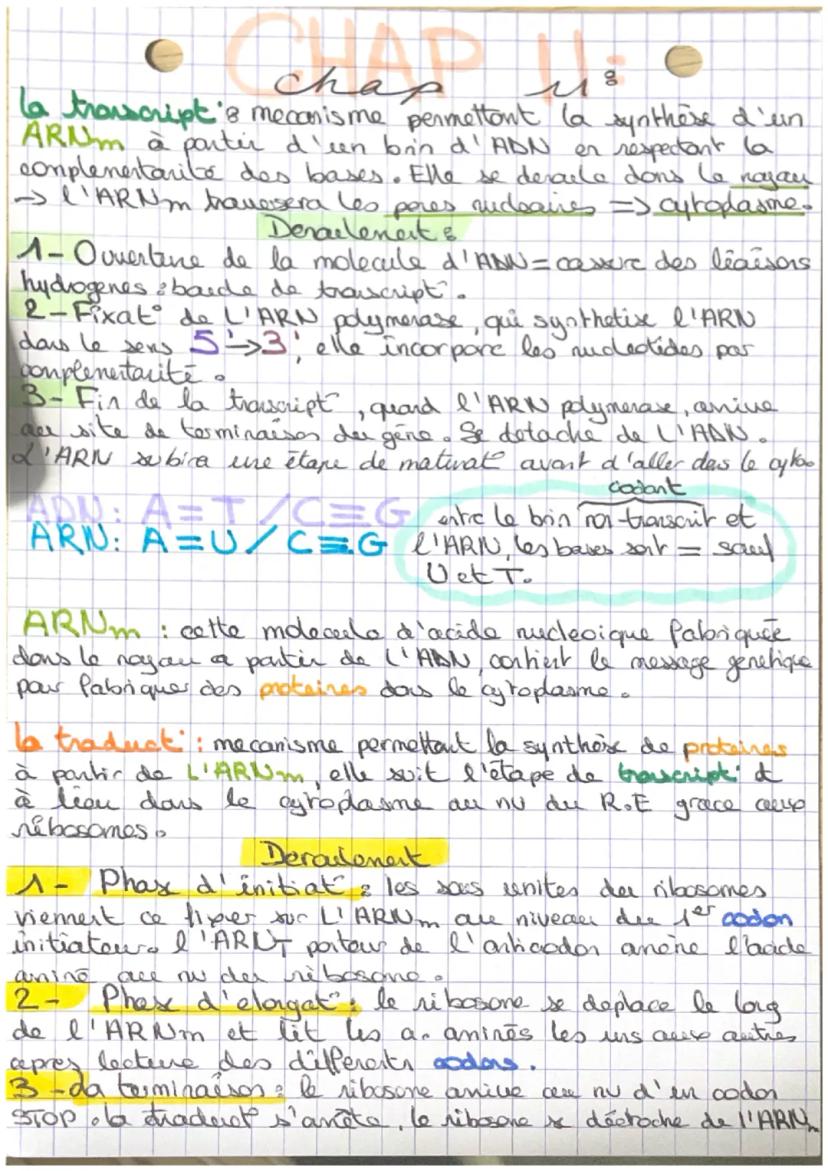 CHAP 11:
chap 11:
la transcript°: mecanisme permettant la synthèse d'un
ARNm à partir d'un brin d'ADN en respectant la
complementarité des bases. Elle se deroule dans le noyau
→ l'ARNm traversera les pores nucleaires => cytoplasme.
Deroulement:
1- Ouverture de la molecule d'ADN = cassure des liaisons
hydrogenes : boucle de transcript°.
2- Fixat° de L'ARN polymerase, qui synthetise l'ARN
dans le sens 5'→3', elle incorpore les nucleotides par
complementarité.
3- Fin de la transcript°, quand l'ARN polymerase, arrive
au site de terminaison du gène. Se detache de L'ADN.
L'ARN subira une étape de maturat° avant d'aller dans le cyto.
ADN: A=T/C≡G
ARN: A=U/C≡G
codant
entre le brin non transcrit et
l'ARN, les bases sont = sauf
U et T.
ARNm : cette molecule d'acide nucleique fabriquée
dans le noyau a partir de l'ADN, contient le message genetique
pour fabriquer des proteines dans le cytoplasme.
la traduct° : mecanisme permettant la synthèse de proteines
à partir de L'ARNm, elle suit l'étape de transcript° et
à lieu dans le cytoplasme au nv du R.E grace aux
ribosomes.
Deroulement
1- Phase d'initiat° : les sous unites du ribosomes
viennent ce fixer sur L'ARNm au niveau du 1er codon
initiateur. l'ARNT porteur de l'anticodon amène l'acide
aminé au nv du ribosome.
2- Phase d'elongat° : le ribosome se deplace le long
de l'ARNm et lit les a. aminés les uns aux autres
apres lecture des différents codons.
3- La terminaison : le ribosome arrive au nv d'un codon
STOP. la traduct° s'arrête, le ribosome se déctroche de l'ARNm